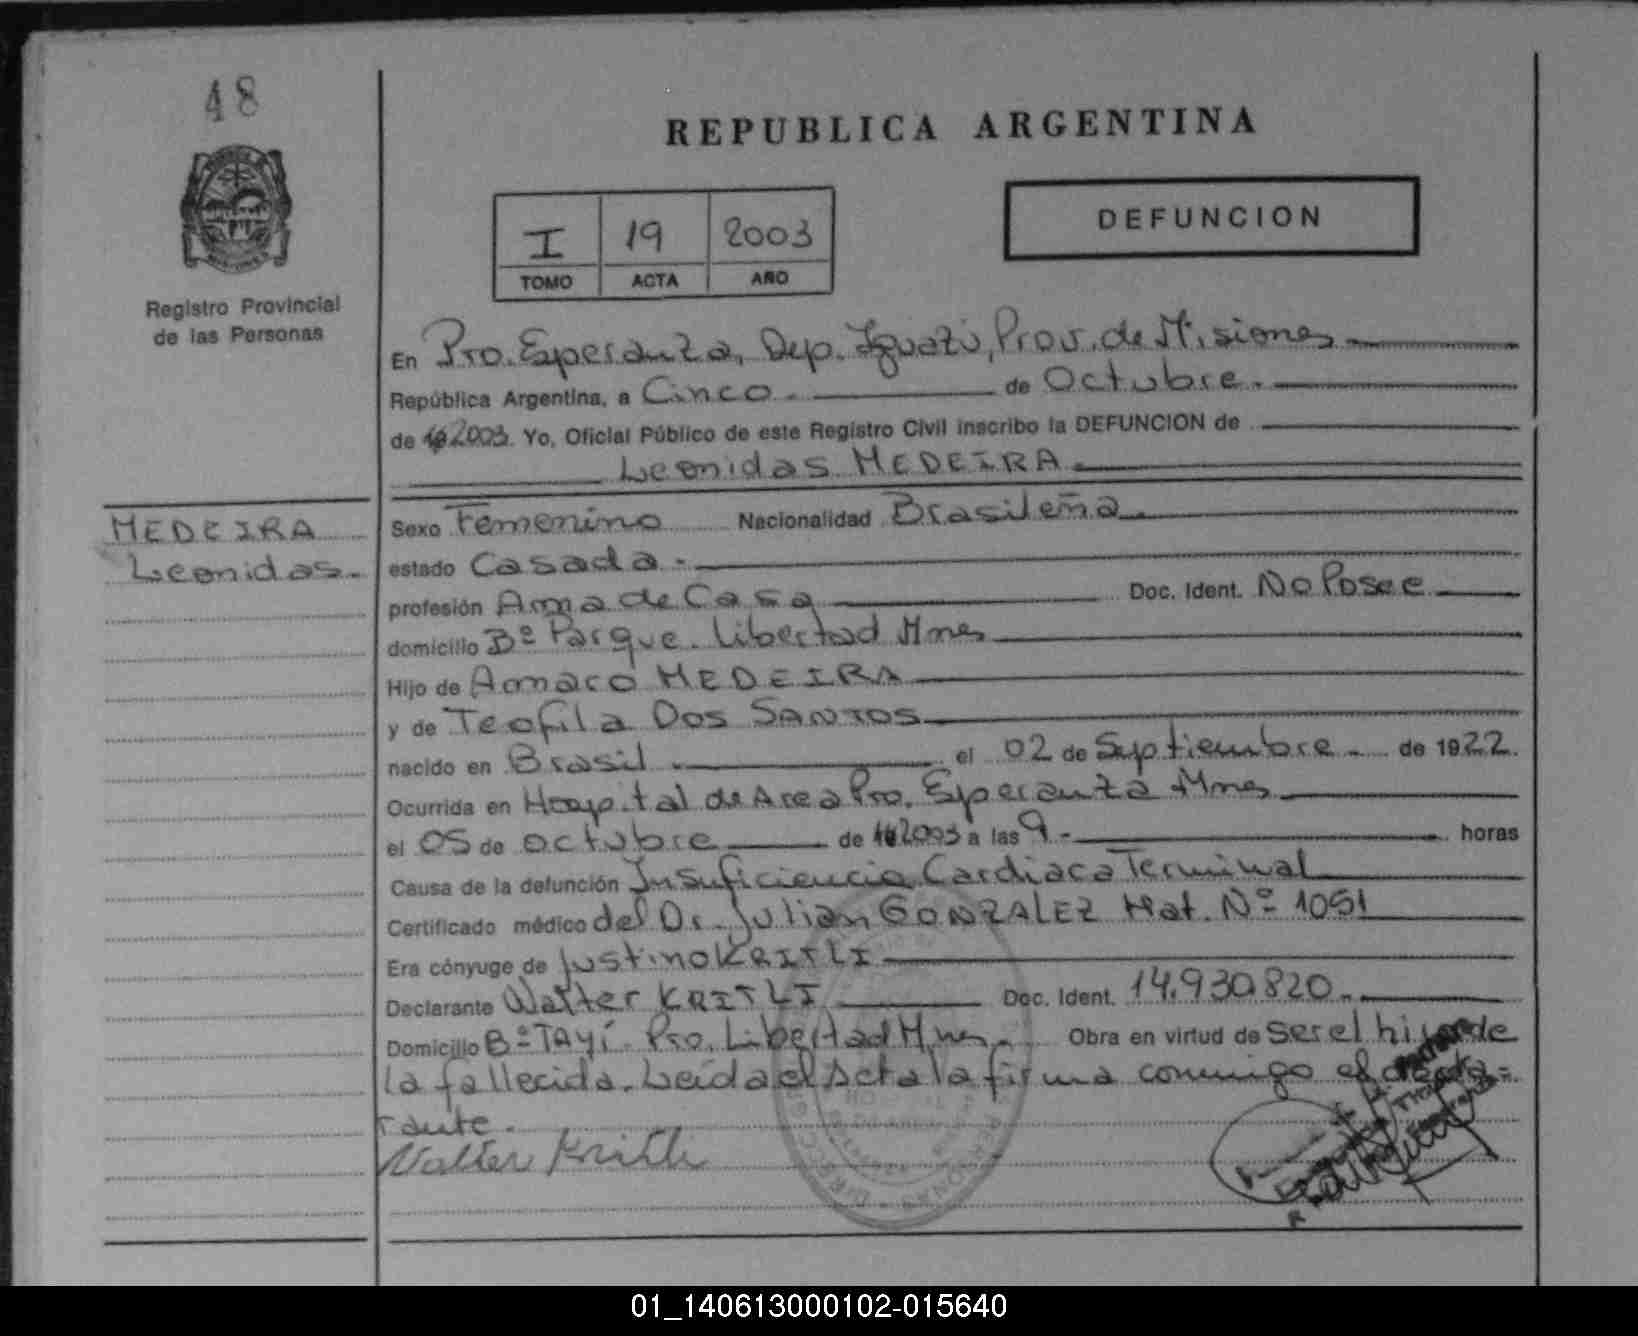 48
REPUBLICA ARGENTINA
DEFUNCION
I 19 2003
TOMO ACTA AÑO
Registro Provincial
de las Personas
En Pto. Esperanza, Dep. Iguazú, Prov. de Misiones
República Argentina, a Cinco. de Octubre.
de 2003. Yo, Oficial Público de este Registro Civil inscribo la DEFUNCION de
Leonidas MEDEIRA
MEDEIRA
Leonidas.
Sexo Femenino Nacionalidad Brasileña
estado Casada.
profesión Ama de Casa Doc. Ident. No Posee
domicilio Bº Parque. Libertad Mnes
Hijo de MEDEIRA
y de Teofila Dos SANTOS
nacido en Brasil el 02 de Septiembre. de 1922.
Ocurrida en Hospital de Area Pto. Esperanza Mnes
el 05 de octubre de 2003 a las 9. horas
Causa de la defunción Insuficiencia Cardiaca Terminal
Certificado médico del Dr. Julian GONZALEZ Mat. Nº 1051
Era cónyuge de Justino KRITLI
Declarante Walter KRITLI Doc. Ident. 14.930.820.
Domicilio Bº TAYí. Pto. Libertad Mnes. Obra en virtud de ser el hijo de
la fallecida. Leída el Acta la firma conmigo el decla=
rante.
Walter Kritli
01_140613000102-015640